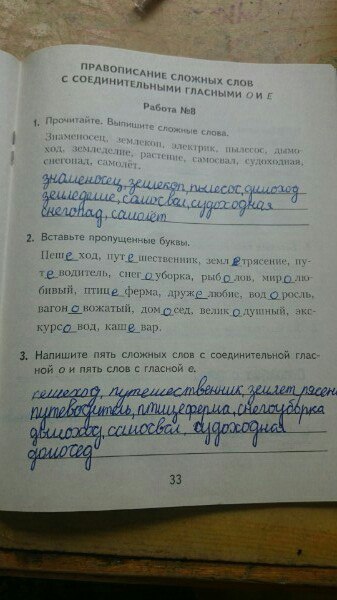 ПРАВОПИСАНИЕ СЛОЖНЫХ СЛОВ
С СОЕДИНИТЕЛЬНЫМИ ГЛАСНЫМИ О И Е
Работа №8
1. Прочитайте. Выпишите сложные слова.
Знаменосец, землекоп, электрик, пылесос, дымо-
ход, земледелие, растение, самосвал, судоходная,
снегопад, самолёт.
знаменосец, землекоп, пылесос, дымоход
земледелие, самосвал, судоходная
снегопад, самолёт
2. Вставьте пропущенные буквы.
Пеш е ход, пут е шественник, земл е трясение, пу-
т е водитель, снег о уборка, рыб о лов, мир о лю-
бивый, птиц е ферма, друж е любие, вод о росль,
вагон о вожатый, дом о сед, велик о душный, экс-
курс о вод, каш е вар.
3. Напишите пять сложных слов с соединительной глас-
ной о и пять слов с гласной е.
пешеход, путешественник,
путеводитель, птицеферма, снегоуборка
дымоход, самосвал, судоходная
домосед
33